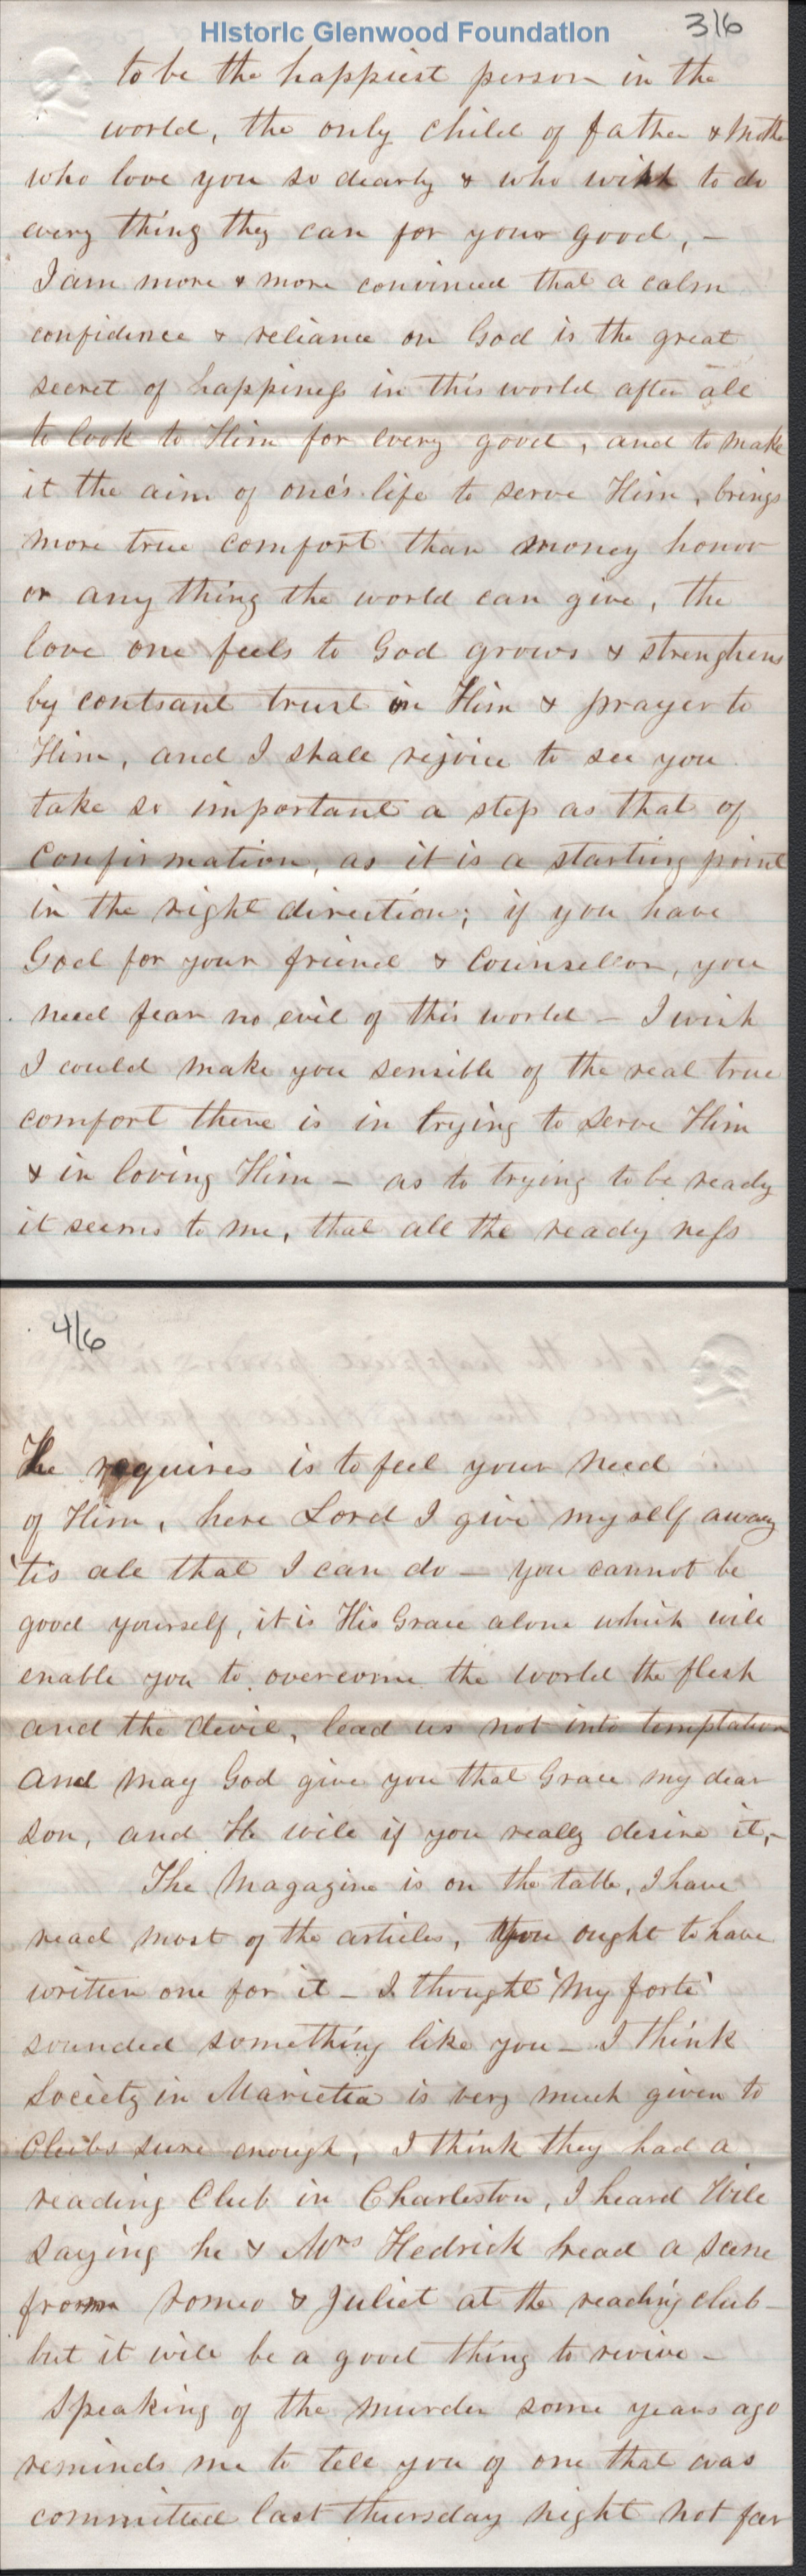 Historic Glenwood Foundation
3/6
to be the happiest person in the
world, the only child of father & Mothe
who love you so dearly & who wish to do
every thing they can for your good, –
I am more & more convinced that a calm
confidence & reliance on God is the great
secret of happiness in this world after all
to look to Him for every good, and to make
it the aim of one's life to serve Him, brings
more true comfort than money honor
or any thing the world can give, the
love one feels to God grows & strengthens
by contsant trust in Him & prayer to
Him, and I shall rejoice to see you
take so important a step as that of
Confirmation, as it is a starting point
in the right direction; if you have
God for your friend & Counsellor, you
need fear no evil of this world – I wish
I could make you sensible of the real true
comfort there is in trying to serve Him
& in loving Him – as to trying to be ready
it seems to me, that all the ready ness
4/6
He requires is to feel your need
of Him, here Lord I give my self away
'tis all that I can do – you cannot be
good yourself, it is His Grace alone which will
enable you to overcome the world the flesh
and the devil, lead us not into temptation
And may God give you that Grace my dear
son, and He will if you really desire it, –
The Magazine is on the table, I have
read most of the articles, You ought to have
written one for it – I thought 'My forte'
sounded something like you – I think
Society in Marietta is very much given to
Clubs sure enough, I think they had a
reading Club in Charleston, I heard Will
saying he & Mrs Hedrick read a scene
from Romeo & Juliet at the reading club –
but it will be a good thing to revive –
Speaking of the murder some years ago
reminds me to tell you of one that was
committed last thursday night not far